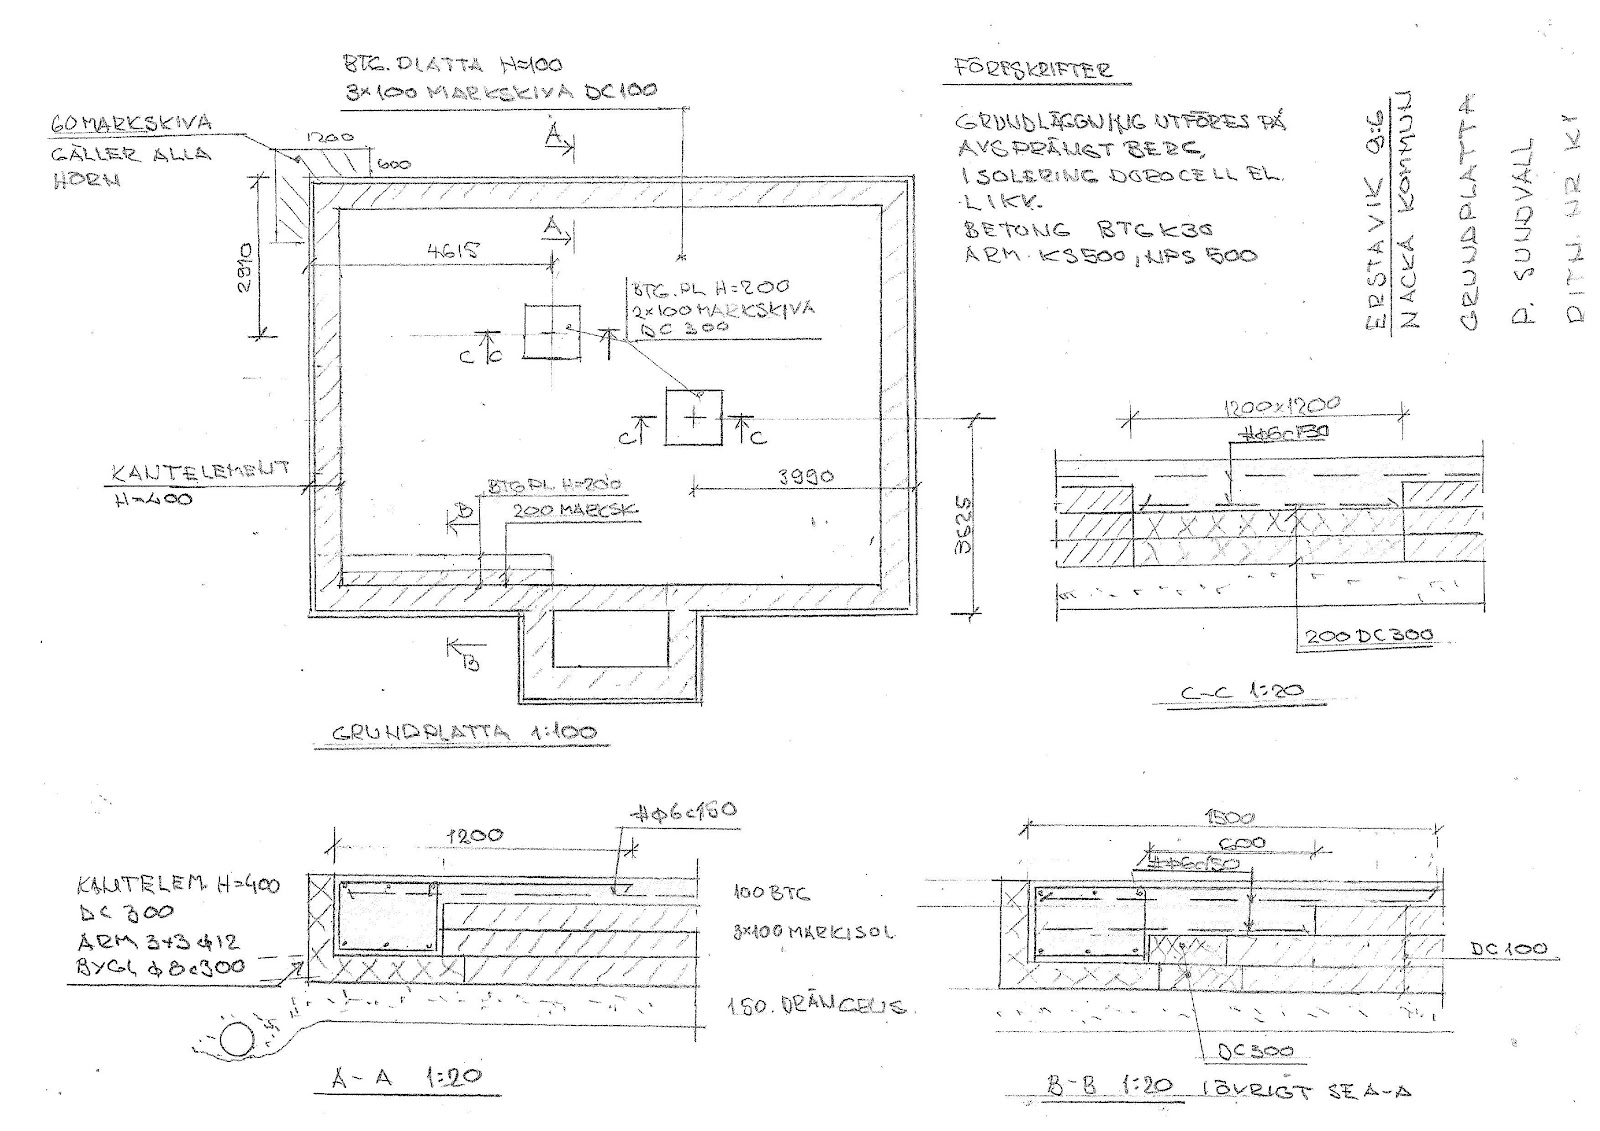 BTG. PLATTA H=100
3×100 MARKSKIVA DC100
60 MARKSKIVA
GÄLLER ALLA
HÖRN
1200
600
A
A
2910
4615
BTG. PL H=200
2×100 MARKSKIVA
DC 300
C
C
C
C
KANTELEMENT
H=400
BTG PL H=200
200 MARKSK
B
B
3990
3625
GRUNDPLATTA 1:100
FÖRESKRIFTER
GRUNDLÄGGNING UTFÖRES PÅ
AVSPRÄNGT BERG,
ISOLERING DOROCELL EL.
LIKV.
BETONG BTG K30
ARM. KS500, NPS 500
ERSTAVIK 9:6
NACKA KOMMUN
GRUNDPLATTA
P. SUNDVALL
RITN. NR K1
1200×1200
#ϕ6c150
200 DC300
C-C 1:20
KANTELEM. H=400
DC 300
ARM 3+3 ϕ12
BYGL ϕ8c300
1200
#ϕ6c150
100 BTG
3×100 MARKISOL
150. DRÄNGRUS.
A-A 1:20
1500
600
#ϕ6c150
DC100
DC300
B-B 1:20 I ÖVRIGT SE A-A